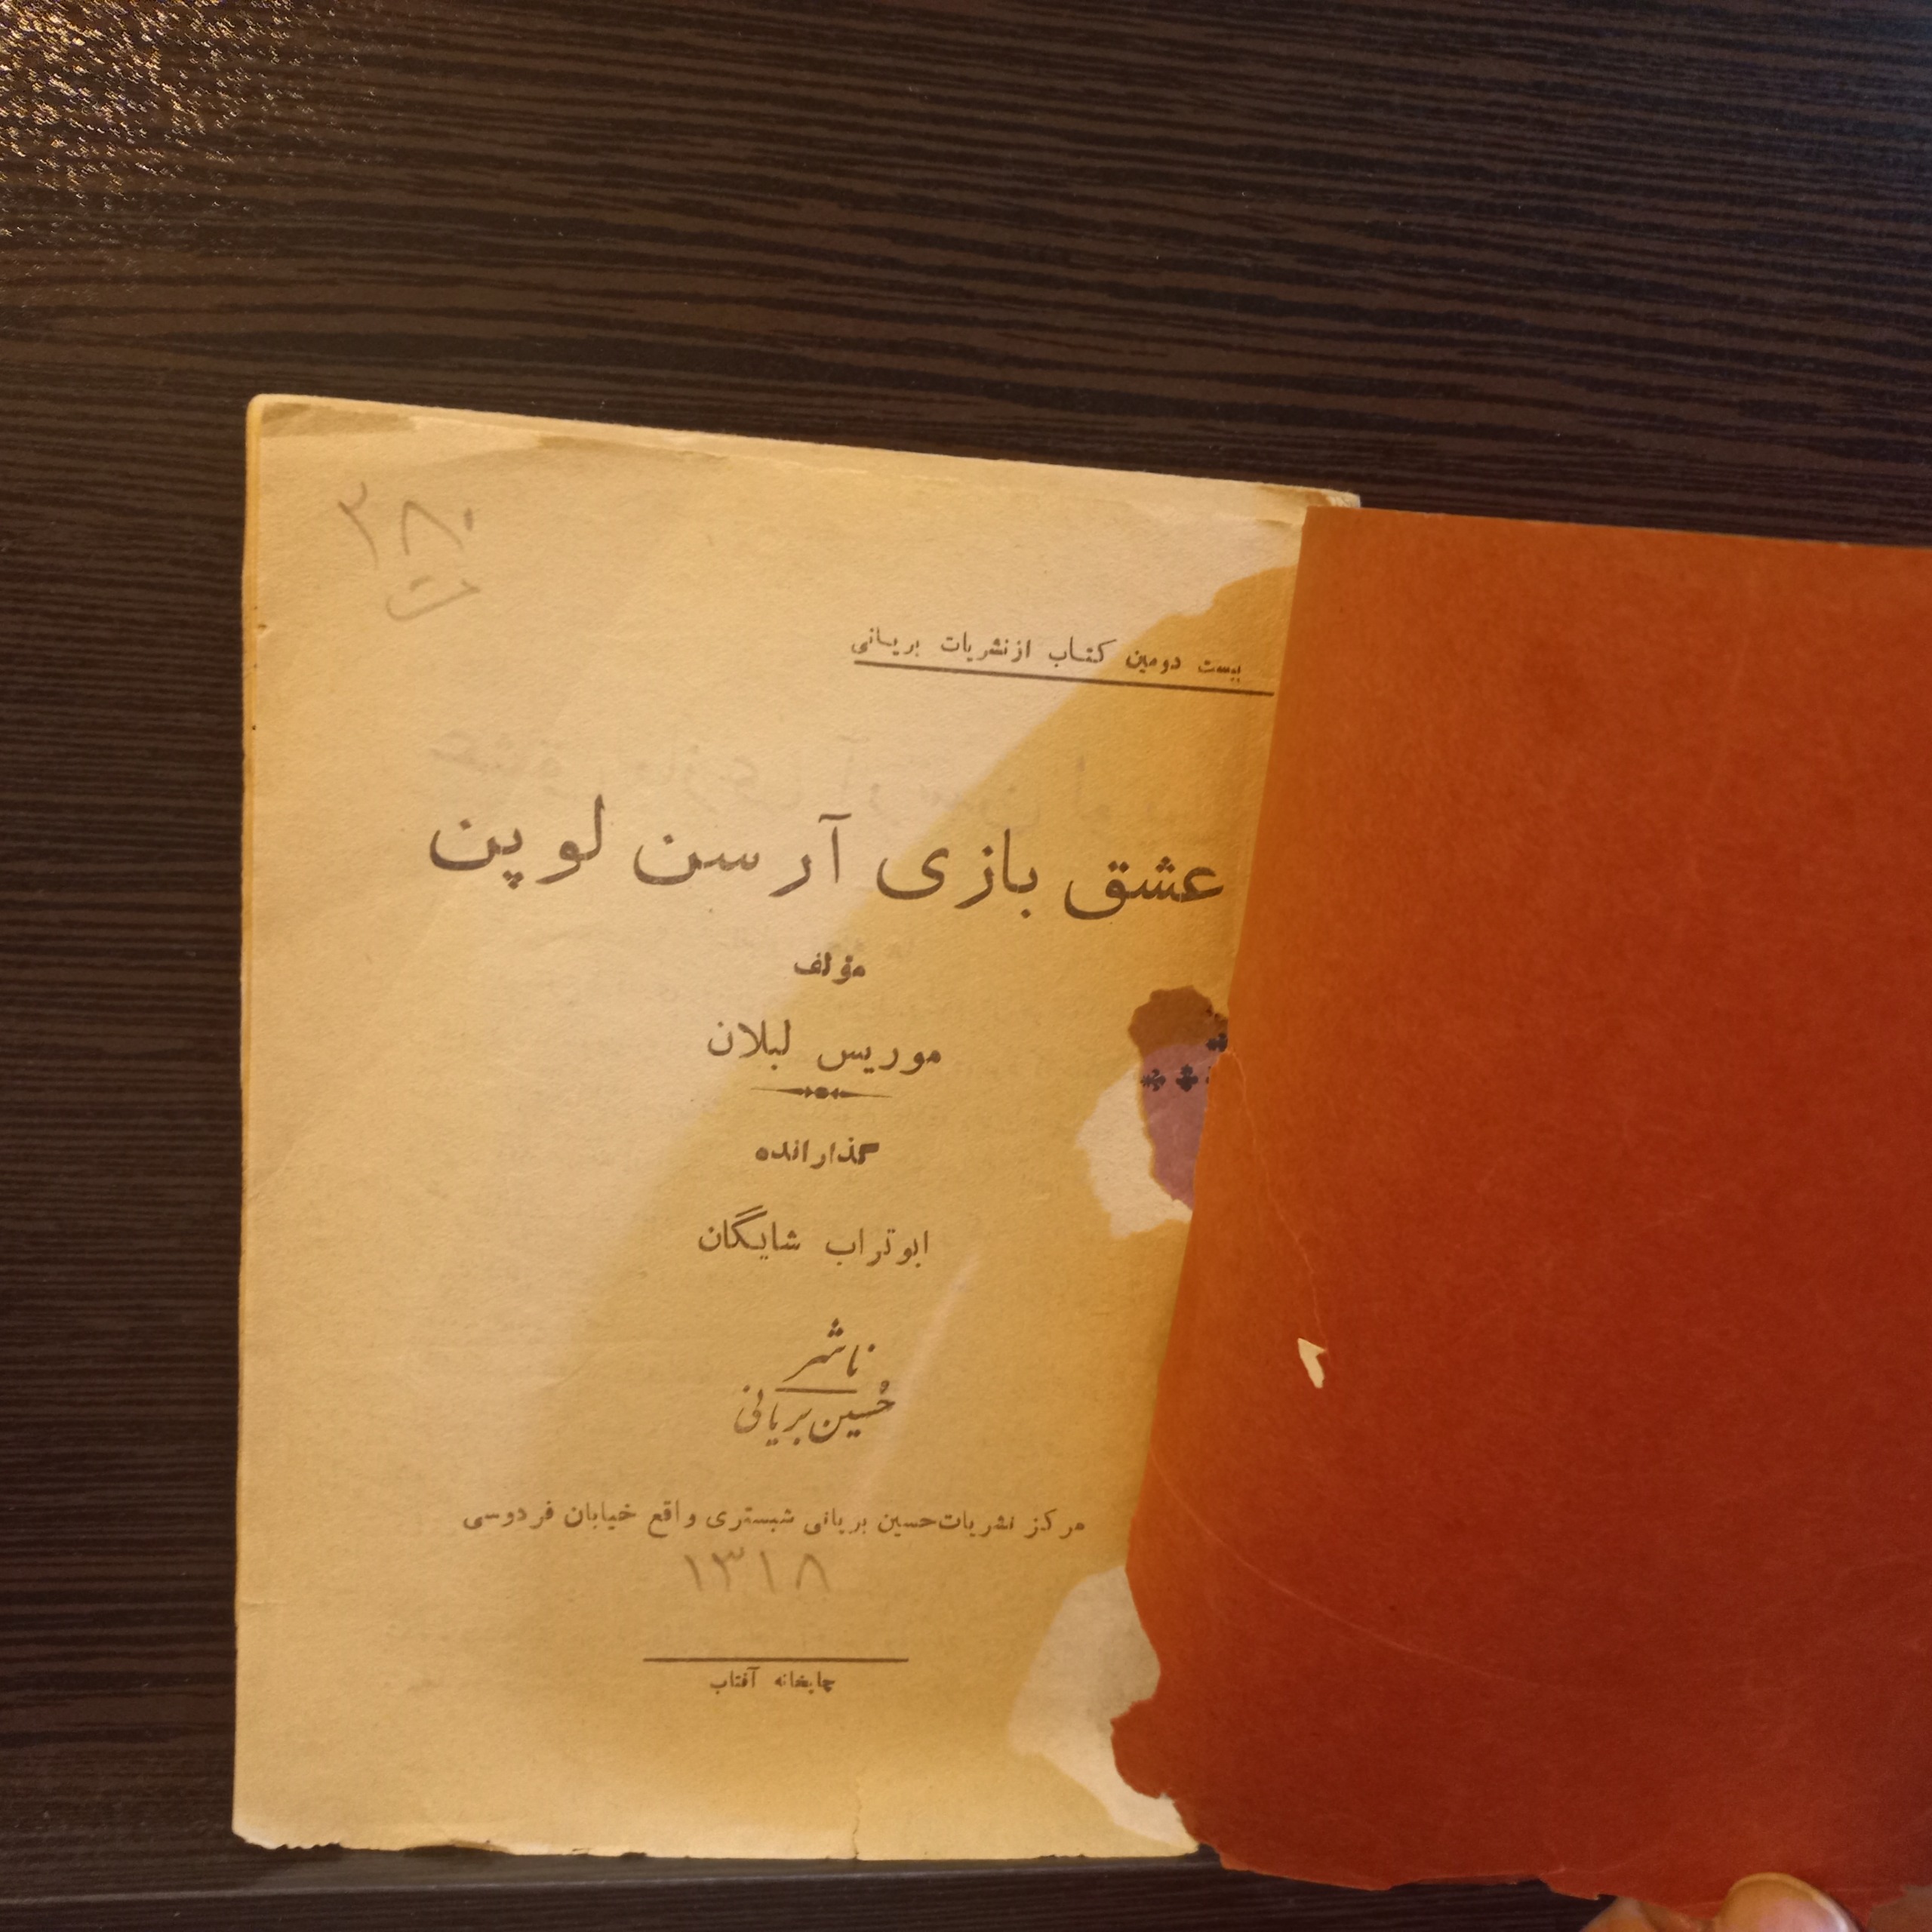 ۳۸۰
بیست دومین کتاب از نشریات بریانی
عشق بازی آرسن لوپن
مؤلف
موریس لبلان
گذارانده
ابوتراب شایگان
ناشر
حسین بریانی
مرکز نشریات حسین بریانی شبستری واقع خیابان فردوسی
۱۳۱۸
چاپخانه آفتاب